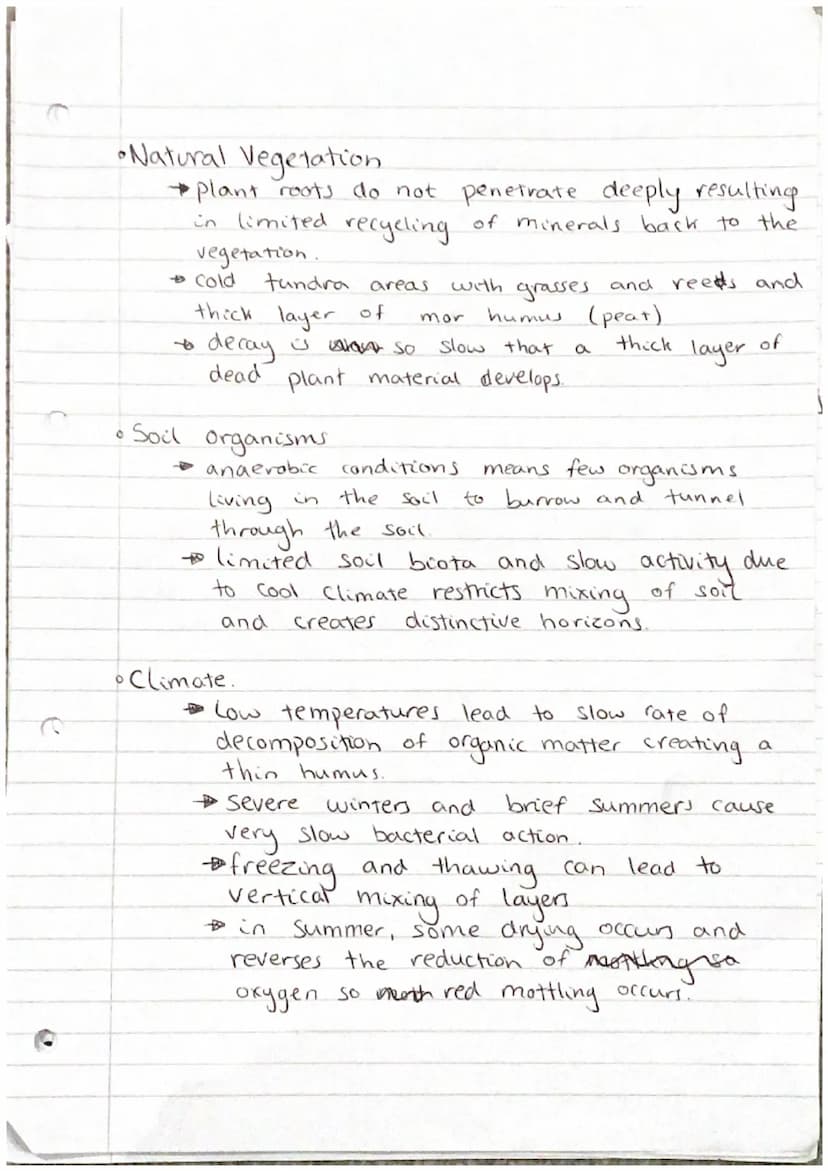 •Natural Vegetation
→ plant roots do not penetrate deeply resulting
in limited recycling of minerals back to the
vegetation.
→ cold tundra areas with grasses and reeds and
thick layer of mor humus (peat)
→ decay is so slow that a thick layer of
dead plant material develops.
• Soil organisms
→ anaerobic conditions means few organisms
living in the soil to burrow and tunnel
through the soil.
→ limited soil biota and slow activity due
to cool climate restricts mixing of soil
and creates distinctive horizons.
• Climate.
→ Low temperatures lead to slow rate of
decomposition of organic matter creating a
thin humus.
→ severe winters and brief summers cause
very slow bacterial action.
→ freezing and thawing can lead to
vertical mixing of layers
→ in summer, some drying occurs and
reverses the reduction of
oxygen so red mottling occurs.